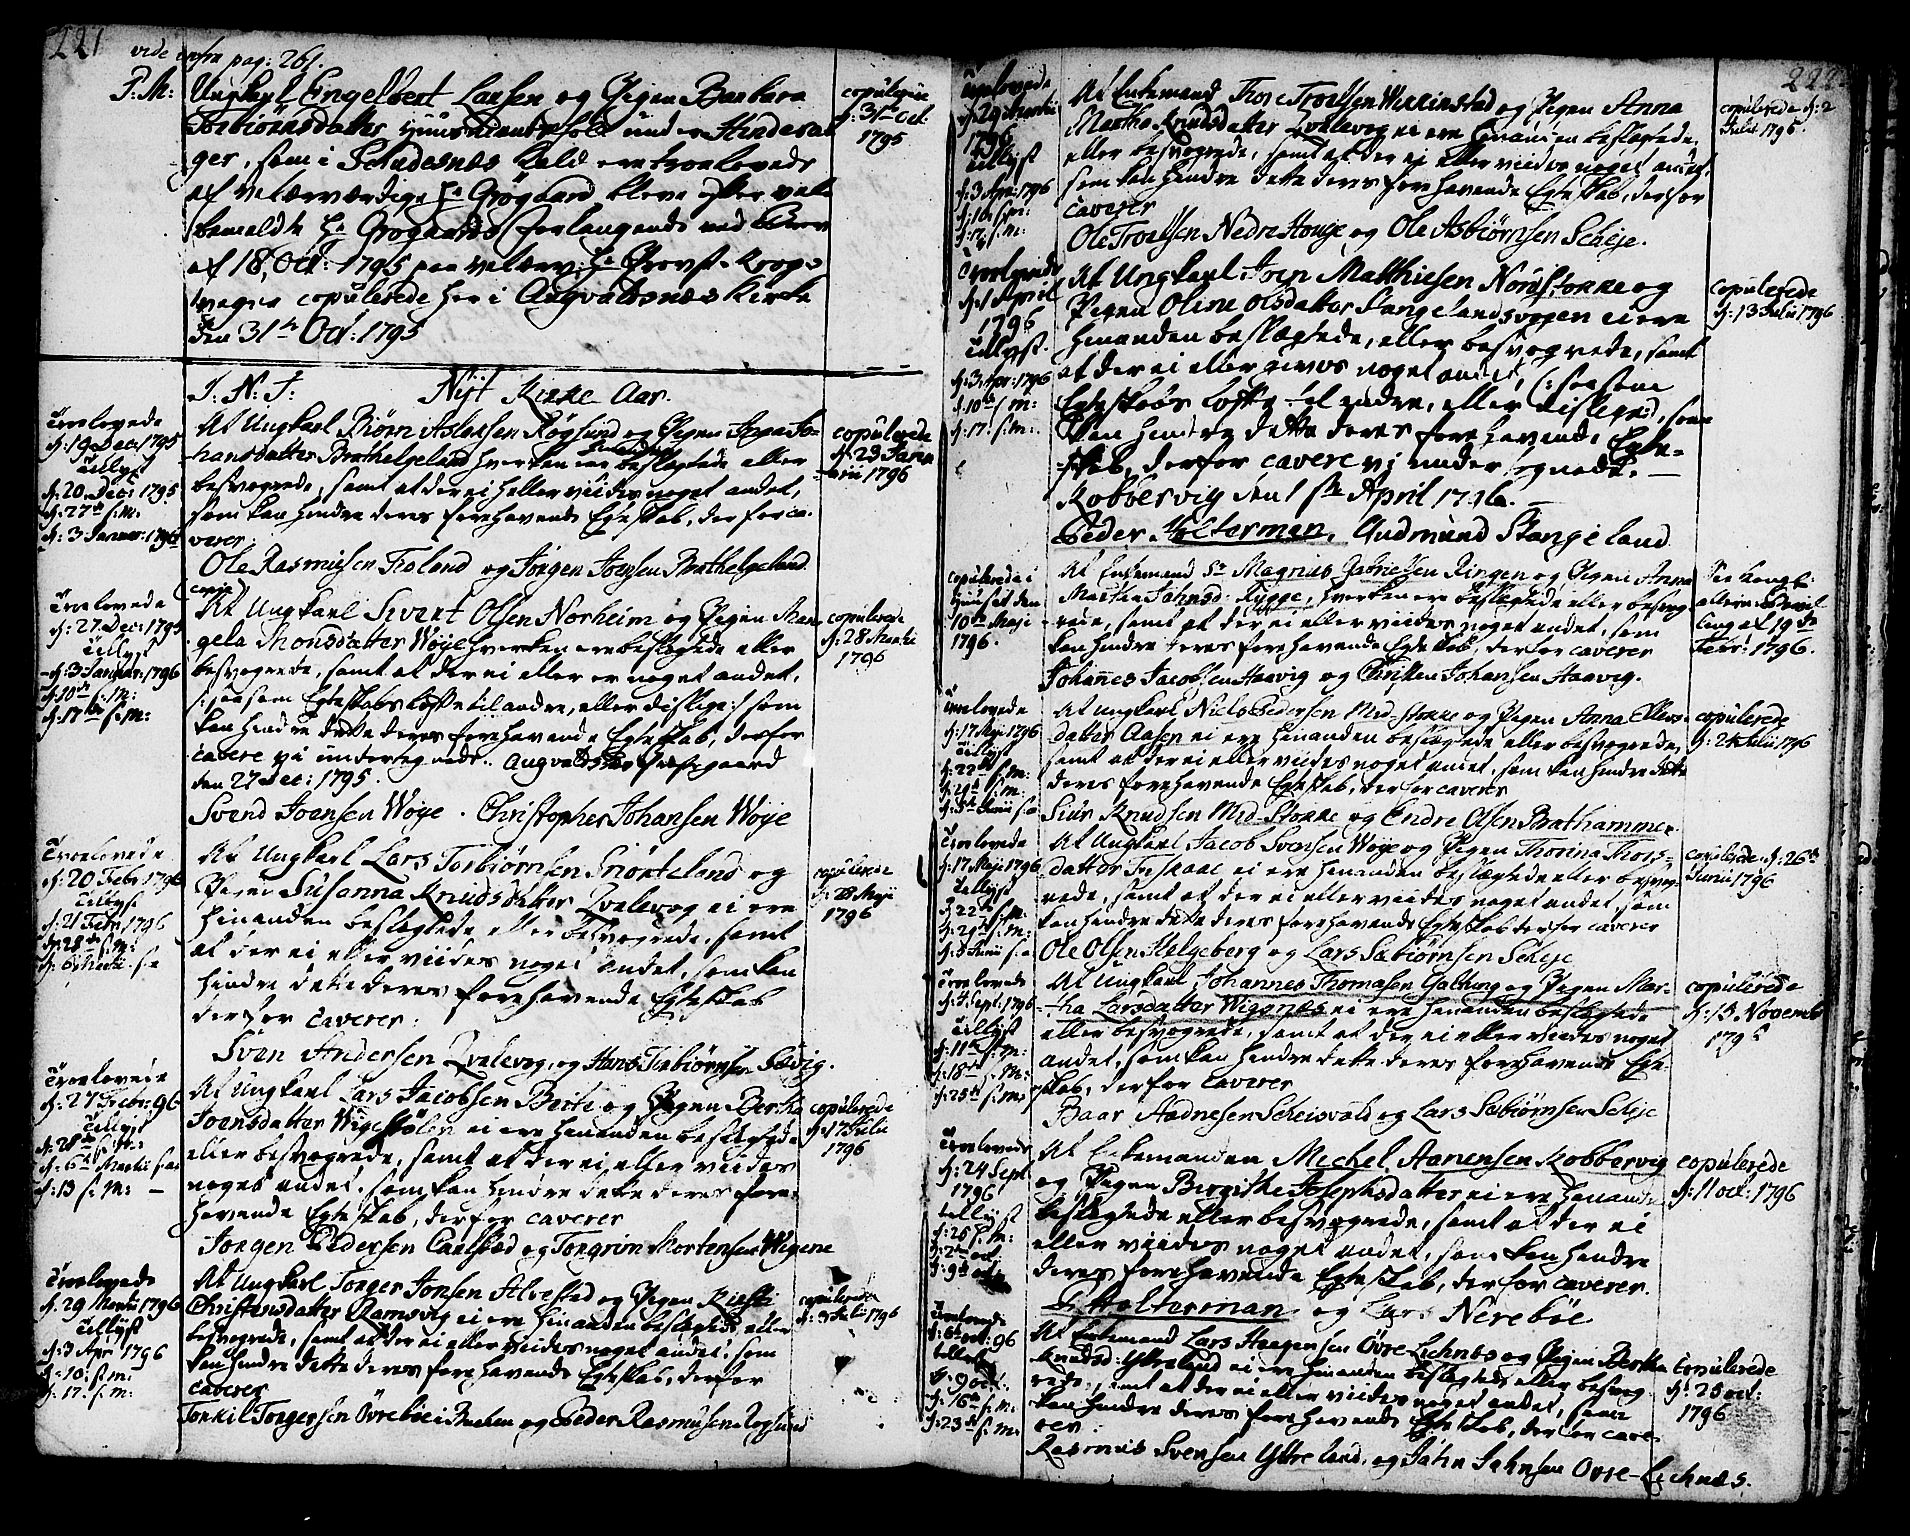 221
vide infra pag: 261.
P. M: Ungkarl Engelbert Larsen og Pigen Barbara
Torbiørnsdatter,
ger, som i Schudesnæs Kald ere troelovede
af velærværdige Hr Grøgaard bleve efter vel-
bemeldte Hr Grøgaards forlangende ved Brev
af 18 Oct: 1795 paa velærv: Hr Provst
copulerede her i Augvalsnæs Kirke
den 31te Oct: 1795
copulerede
d: 31te Oct.
1795
I: N: I: Nyt Kirke Aar.
Troelovede
d: 19 Dec: 1795
tillyst
d: 20 Dec: 1795
d: 27de s: m:
d: 3 Januar: 1796
At Ungkarl Biørn Aslaksen Røgsund og Pigen Anna Jo-
hansdatter Brathelgeland hverken ere beslægtede eller
besvogrede, samt at der ei heller viides noget andet,
som kan hindre deres forehavende Egteskab, derfor ca-
verer:
Ole Rasmusen Føland og Jørgen Joensen Brathelgeland
copulerede
d: 23 Janu-
arii 1796
(copie)
Troelovede
d: 27 Dec: 1795
tillyst
d: 3 Januar: 1796
d: 10de s: m:
d: 17de s: m:
At Ungkarl Sivert Olsen Norheim og Pigen Man-
gela Thonsdatter Wøye hverken ere beslægtede eller
besvogrede, samt at der ei eller er noget andet,
(: saasom Egteskabs løfte til andre, eller dislige :) som
kan hindre dette deres forehavende Egteskab, derfor
cavere vi undertegnede. Augvalsnæs Præstegaard
den 27 Dec: 1795.
Svend Joensen Wøye. Christopher Johansen Wøye
copulerede
d: 28 Martii
1796
Troelovede
d: 20 Febr: 1796
tillyst
d: 21 Febr: 1796
d: 28de s: M:
d: 6 Martii s: a
At Ungkarl Lars Torbiørnsen Snørteland og
Pigen Susanna Knudsdatter Qvalevog ei ere
hinanden beslægtede eller besvogrede, samt
at der ei eller viides noget andet, som kan
hindre dette deres forehavende Egteskab
derfor caverer:
Sven Andersen Qvalevog, og Hans Torbiørnsen Sævig.
copulerede
d: 28 Maji
1796
Troelovede
d: 27 Febr: 96
tillyst
d: 28de s: M:
d: 6te Martii s: a
d: 13 s: M:
At Ungkarl Lars Jacobsen Berte og Pigen Bertha
Joensdatter Wigestølen ei ere hinanden beslægtede
eller besvogrede, samt at der ei eller viides
noget andet, som kan hindre dette deres fore-
havende Egteskab, derfor caverer
Jørgen Pedersen Carlstad og Torgrim Mortensen Wigene
copulerede
d: 17 Julii
1796
Troelovede
d: 29 Martii 1796
tillyst
d: 3 Apr 1796
d: 10: s: m:
d: 17: s: m:
At Ungkarl Torger Jonsen Alvestad og Pigen Kirsti
Christensdatter Ramsvig ei ere hinanden beslægtede eller
besvogrede, samt at der ei eller viides noget andet, som
kan hindre dette deres forehavende Egteskab, derfor
caverer
Torkil Torgersen Øvrebøe i Brechen og Peder Rasmusen Rogsund
copulerede
1796
222
Troelovede
d: 29 Martii
1796
tillyst
d: 3 Apr: 1796
d: 10 s: m:
d: 17 s: m:
At Enkemand Thore Troelsen Wikkinstad og Pigen Anna
Martha Knudsdatter Qvalevog ei ere hinanden beslægtede,
eller besvogrede, samt at der ei eller viides noget andet,
som kan hindre dette deres forehavende Egteskab, derfor
caverer
Ole Troelsen Nedre Houge og Ole Asbiørnsen Scheje.
copulerede d: 2
Julii 1796.
Troelovede
d: 1 April
1796
tillyst.
d: 3 Apr: 1796
d: 10de s: m:
d: 17 s: m:
At Ungkarl Iven Matthiesen Nordstokke og
Pigen Oline Olsdatter Stangelandsvogen ei ere
hinanden beslægtede, eller besvogrede, samt
at der ei eller gives noget andet, (: saasom
Egteskabs løfte til andre, eller dislige :), som
kan hindre dette deres forehavende Egte-
skab, derfor cavere vi undertegnede.
Kobbervig den 1ste April 1796.
Peder Holterman, Gudmund Stangeland
copulerede
d: 13 Julii 1796
copulerede i
Huuset den
10de Maji
1796.
At Enkemand Sr Magnus Gabrielsen Ringen og Pigen Anna
Martha Johnsd: Rygge, hverken ere beslægtede eller besvog-
rede, samt at der ei eller viides noget andet, som
kan hindre deres forehavende Egteskab, derfor caverer
Johannes Jacobsen Haavig og Christen Johansen Haavig.
See Kongl:
allern:
ling af 19de
Febr: 1796.
Troelovede
d: 17 Maji 1796
tillyst
d: 22de s: M:
d: 29de s: M:
d: 5te Junii s: a
At Ungkarl Niels Pedersen Mid-Stokke og Pigen Anna Ellers-
datter Aasen ei ere hinanden beslægtede eller besvogrede,
samt at der ei eller viides noget andet, som kan hindre dette
deres forehavende Egteskab, derfor caverer
Siur Knudsen Mid-Stokke og Endre Olsen Brathammer.
copulerede
d: 24 Julii 1796
Troelovede
d: 17 Maji 1796
tillyst
d: 22de s: M:
d: 29de s: M:
d: 5 Junii s: a
At Ungkarl Jacob Svensen Wøye og Pigen Thorina Thors-
datter Fiskaae ei ere hinanden beslægtede eller besvog-
rede, samt at der ei eller viides noget andet, som
kan hindre dette deres forehavende Egteskab derfor caverer
Ole Olsen Helgeberg og Lars Sæbiørnsen Scheje
copulerede d: 26de
Junii 1796
Troelovede
d: 4 Sept: 1796
tillyst
d: 11te s: M:
d: 18de s: M:
d: 25de s: M:
At Ungkarl Johannes Thomasen Galtung og Pigen Mar-
tha Larsdatter Wigsnæs ei ere hinanden beslægtede
eller besvogrede, samt at der ei eller viides noget
andet, som kan hindre dette deres forehavende Egte-
skab, derfor caverer
Baar Aadnesen Scheisvold og Lars Sæbiørnsen Scheje
copulerede
d: 13 Novemb
1796
Troelovede
d: 24 Sept
1796
tillyst
d: 25 s: M:
d: 2den oct.
d: 9de oct.
At Enkemanden Michel Aanensen Kobbervig
og Pigen Birgithe Josephsdatter ei ere hinanden
beslægtede eller besvogrede, samt at der ei
eller viides noget andet, som kan hindre
deres forehavende Egteskab, derfor caverer.
P: Holterman og Lars Nerebøe
copulerede
d: 11 oct: 1796
Troelovede
d: 6te oct: 96
tillyst
d: 9 oct.
d: 16de s: M.
d: 23de s: M.
At Enkemand Lars Haagensen Øvre Liknes og Pigen Bertha
Knudsd: Ytreland ei ere hinanden beslægtede eller besvog-
rede, samt at der ei eller viides noget andet, som
kan hindre deres forehavende Egteskab, derfor cave-
rer:
Rasmus Svensen Ytreland, og John Johnsen Øvre-Liknæs.
copulerede
d: 25 oct:
1796